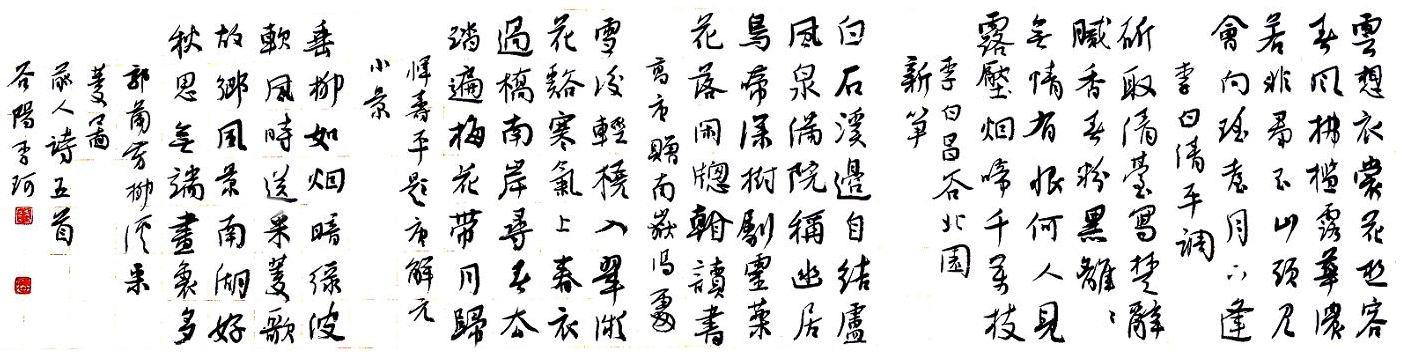 雲想衣裳花想容
春風拂檻露華濃
若非群玉山頭見
會向瑤臺月下逢
李白清平調
斫取清寫楚辭
膩香春粉黑離〻
無情有恨何人見
露壓烟啼千萬枝
李白昌谷北園
新笋
白石溪邊自結廬
風泉滿院稱幽居
鳥啼深樹劚靈藥
花落閑牕讀書
高贈南嶽馮處
雪後輕橈入翠微
花谿寒氣上春衣
過橋南岸尋春去
踏遍梅花帶月歸
惲壽平題唐解元
小景
垂柳如烟暗綠波
軟風時送采菱歌
故鄉風景南湖好
秋思無端畫裏多
郭蘭芳柳溪采
菱圖
人詩五首
谷陽李珂